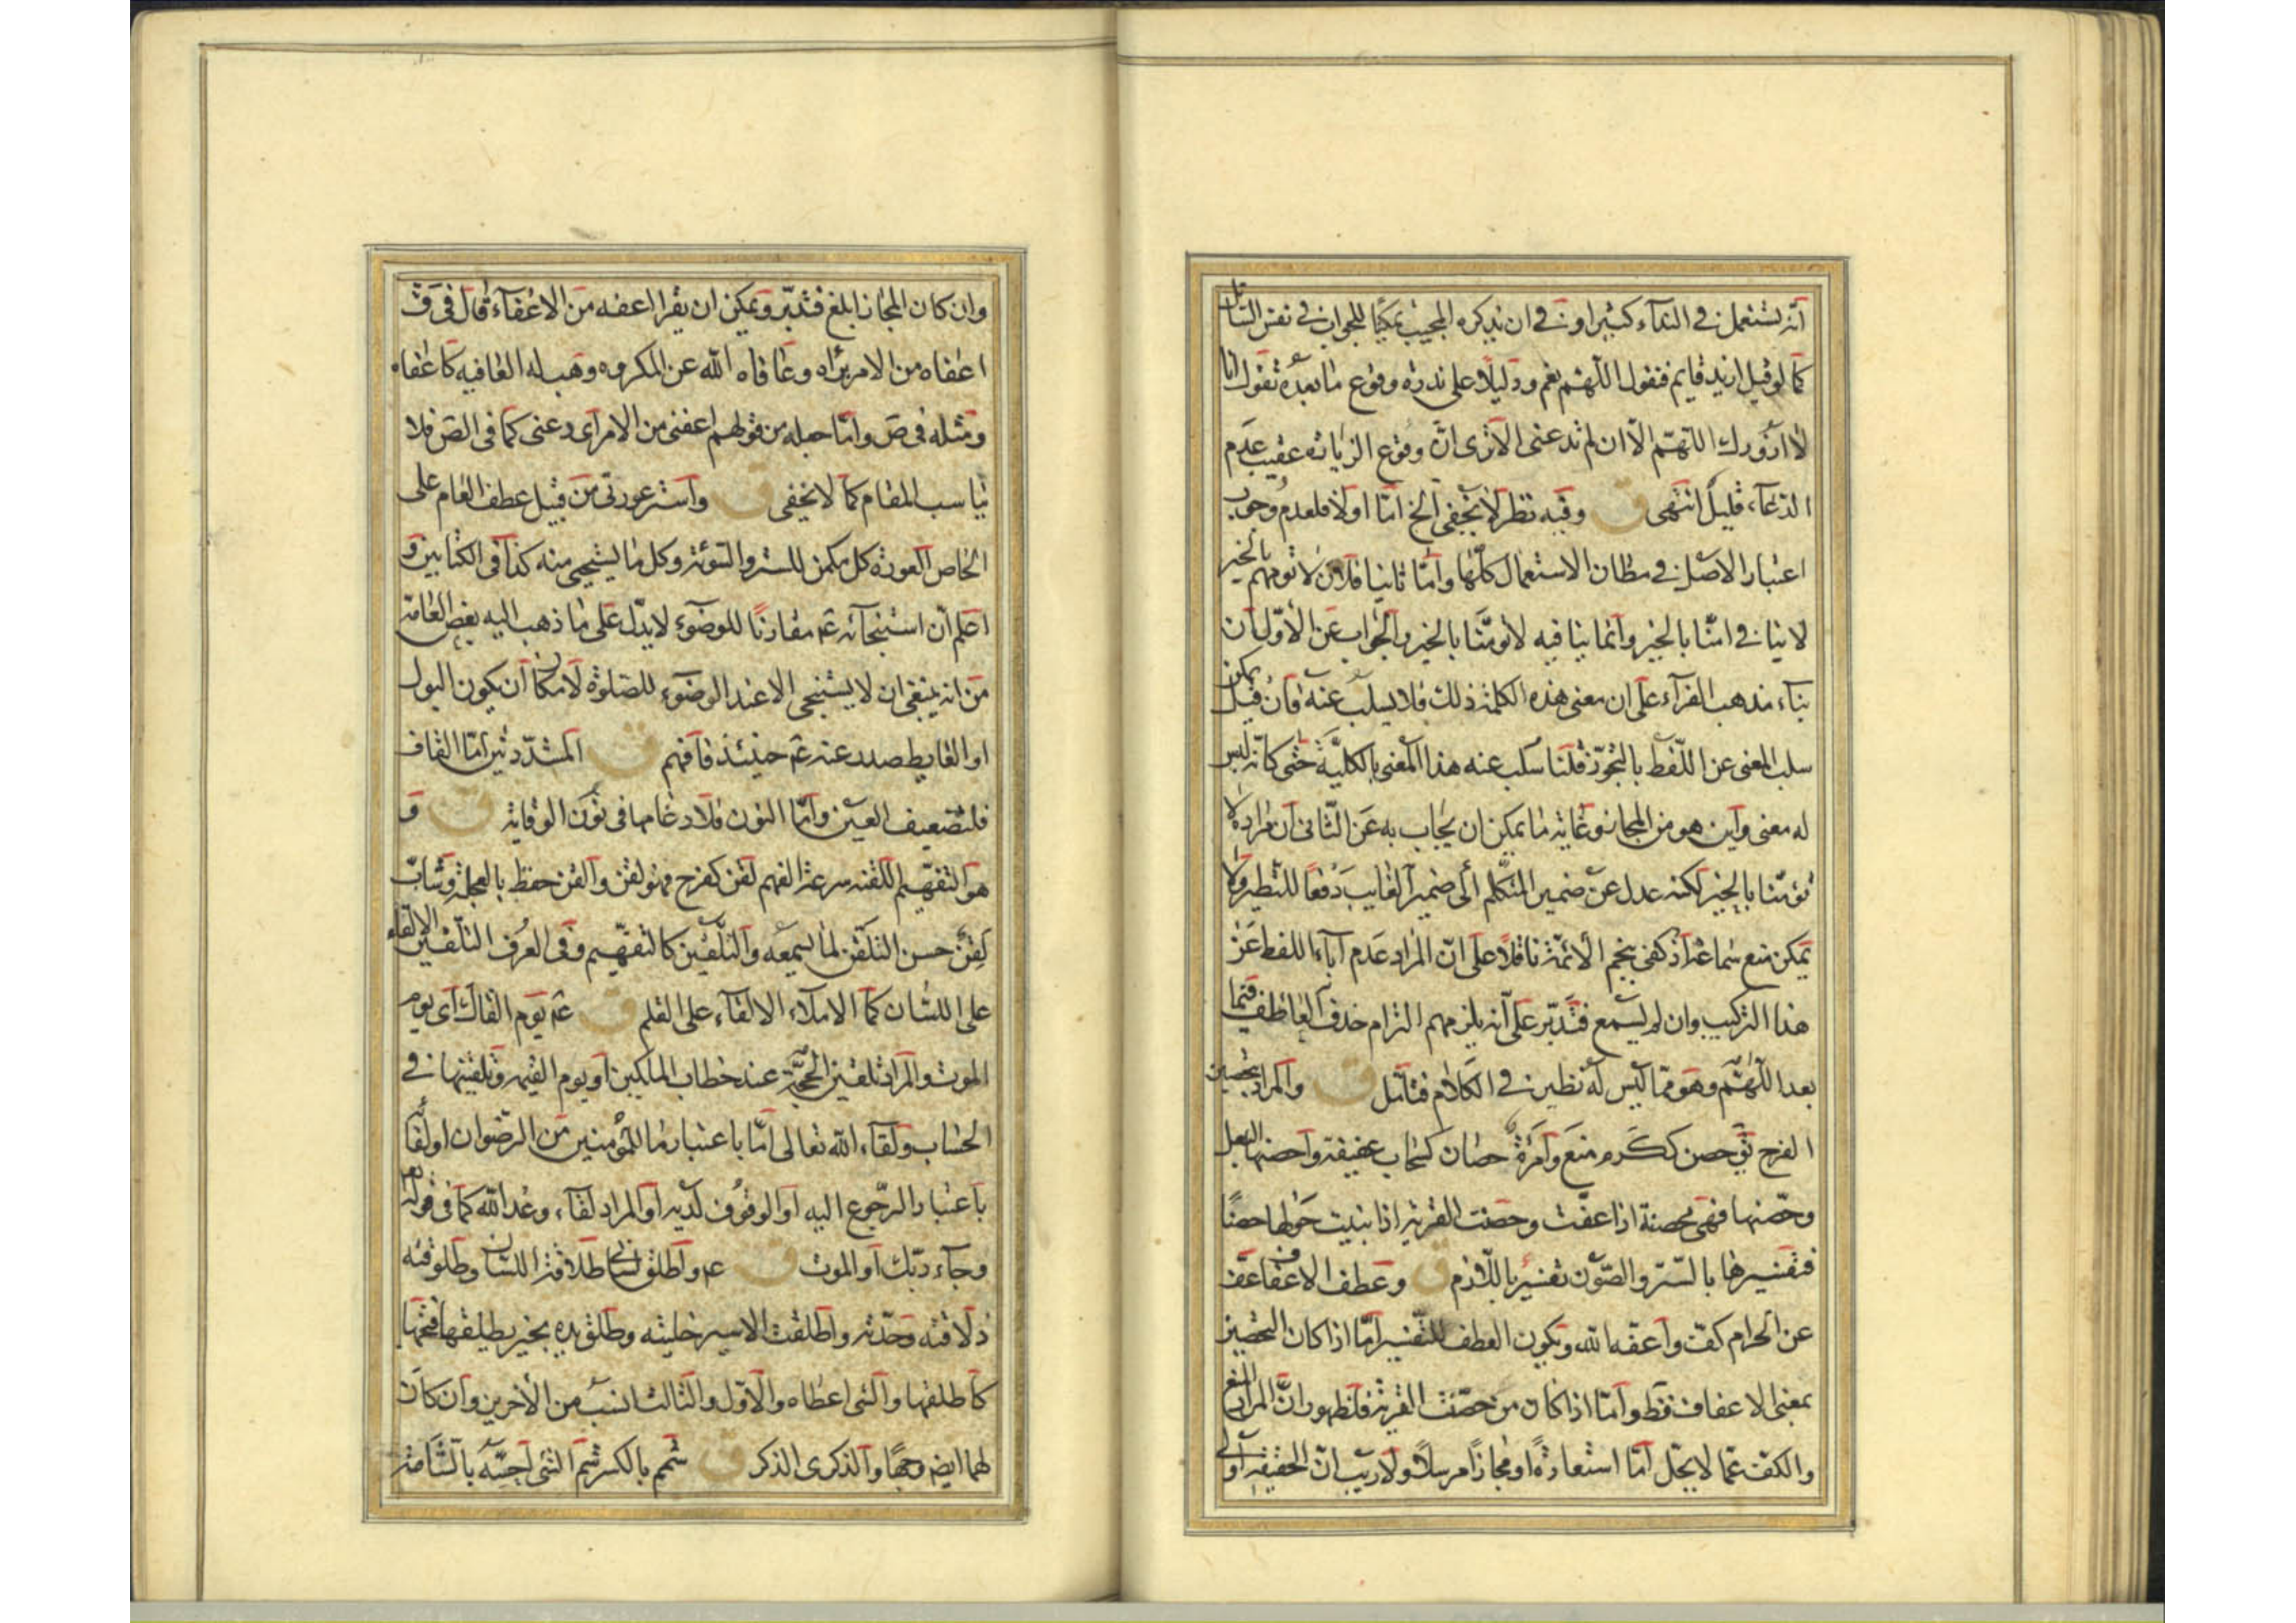 انّه يستعمل في الندآء كثيرا و في ان يذكره المجيب تمكينا للجواب في نفس السائل
كما لو قيل ازيد قايم فنقول اللّهم نعم و دليلا على ندرة وقوع ما بعده تقول انا
لا ازورك اللّهم الا ان لم تدعنى الا ترى انّ وقوع الزيارة عقيب عدم
الدعآء قليل انتهى ق وفيه نظر لا يخفى الخ امّا اولا فلعدم وجوب
اعتبار الاصل في مظان الاستعمال كلّها وامّا ثانيا فلان لا تومهم بالخير
لا ينافي امنّا بالخير وانما ينافيه لا تومّنا بالخير والجواب عن الاوّل ان
بناء مذهب الفرآء على ان معنى هذه الكلمة ذلك فلا يسلب عنه فان قيل يمكن
سلب المعنى عن اللّفظ بالتجوّز قلنا سلب عنه هذا المعنى بالكليّة حتى كانّه ليس
له معنى واين هو من المجاز وغاية ما يمكن ان يجاب به عن الثّانى ان مراده لا
تؤمّنا بالخير لكنه عدل عن ضمير المتكلّم الى ضمير الغايب دفعا للتطير ولا
يمكن منع سماعه اذ كفى بنجم الائمّة ناقلا على انّ المراد عدم اباء اللفظ عن
هذا التركيب وان لم يسمع فتدبّر على انه يلزمهم التزام حذف العاطف فيما
بعد اللّهمّ وهو ممّا ليس له نظير في الكلام فتامّل ق والمراد بتحصين
الفرج ق حصن ككرم منع وامرءة حصان كسحاب عفيفة واحصنها البعل
وحصّنها فهى محصنة اذا عفّت وحصنت القرية اذا بنيت حولها حصنًا
فتفسيرها بالستر والصّون تفسير باللّازم ق وعطف الاعفاف عفّ
عن الحرام كفّ واعفّه الله ويكون العطف للتّفسير امّا اذا كان التحصين
بمعنى الاعفاف فقط وامّا اذا كان من حصّنت القرية فلظهور انّ المراد المنع
والكفّ عمّا لا يحل امّا استعارةً او مجازاً مرسلاً ولا ريب انّ الحقيقة اولى
وان كان المجاز ابلغ فتدبّر ويمكن ان يقرا اعفه من الاعفآء قال فى ق
اعفاه من الامر برّاه وعافاه الله عن المكروه وهب له العافيه كاعفاه
ومثله فى ص وامّا جعله من قولهم اعفنى من الامر اى دعنى كما فى الص فلا
يناسب المقام كما لا يخفى ق واستر عورتى من قبيل عطف العام على
الخاص العورة كل مكمن للستر والسّوئة وكل ما يستحيى منه كذا فى الكتابين و
اعلم انّ استنجآئه ع مقارنًا للوضوء لا يدلّ على ما ذهب اليه بعض العامّة
من انه ينبغى ان لا يستنجى الا عند الوضوء للصّلوة لامكان ان يكون البول
او الغايط صدر عنه ع حينئذ فافهم ق المشدّدتين امّا القاف
فلتضعيف العين وامّا النون فلادغامها فى نون الوقاية ق و
هو التفهيم اللقنه سرعة الفهم لقن كفرح فهو لقن والقن حفظ بالعجلة وشابّ
لقن حسن التلقّن لما يسمعه والتلقين كالتفهيم وفى العرف التلقين الالقآء
على اللسان كما الاملآء الالقآء على القلم ق ع يوم القاك اى يوم
الموت والمراد تلقين الحجّة عند خطاب الملكين او يوم القيمه وتلقينها في
الحساب ولقاء الله تعالى امّا باعتبار ما للمؤمنين من الرضوان او لقا
باعتبار الرّجوع اليه او الوقوف لديه او المراد لقآء وعد الله كما فى قوله تعالى
وجآء ربّك او الموت ق ع واطلق لسانى طلاقة اللسان وطلوقته
ذلاقته وحدّته واطلقت الاسير خليته وطلق يده بخير يطلقها فتحها
كاطلقها والشى اعطاه والاوّل والثالث انسب من الاخرين وان كان
لهما ايضه وجها والذكرى الذكر ق شمم بالكسر شم الشى احسّه بالشامّة